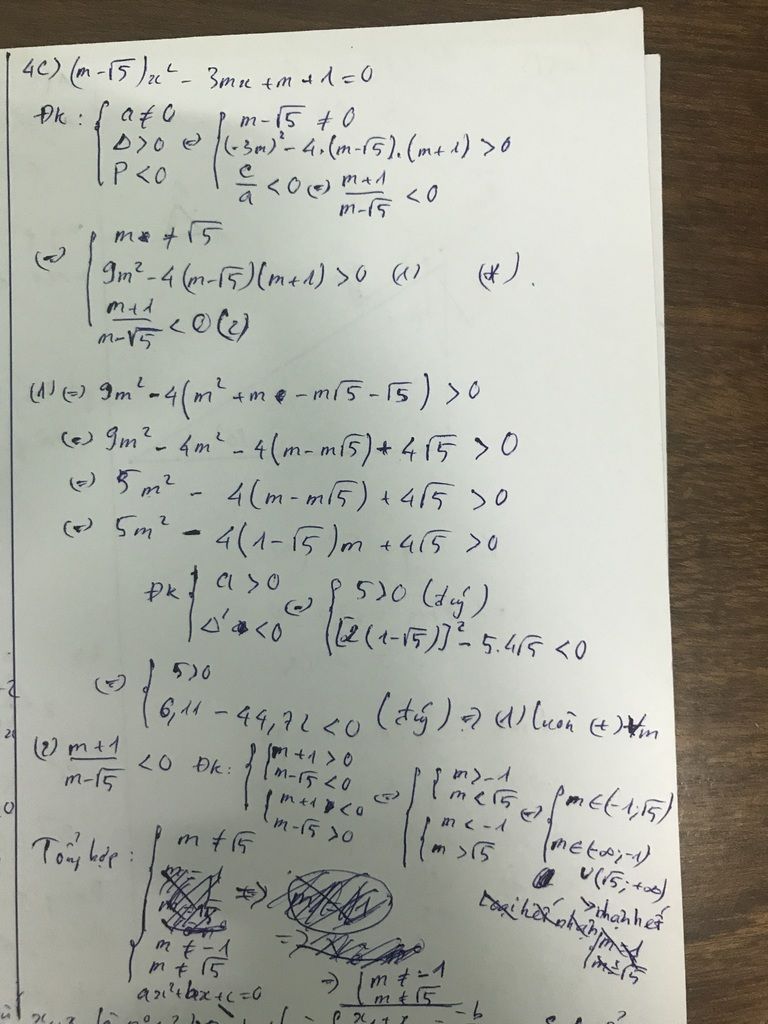 4c) (m-√5)x² - 3mx + m + 1 = 0
ĐK: { a ≠ 0
Δ > 0
P < 0
⇔ { m - √5 ≠ 0
(-3m)² - 4.(m-√5).(m+1) > 0
c/a < 0 ⇔ (m+1)/(m-√5) < 0
⇔ { m ≠ √5
9m² - 4(m-√5)(m+1) > 0 (1) (*).
(m+1)/(m-√5) < 0 (2)
(1) ⇔ 9m² - 4(m² + m - m√5 - √5) > 0
⇔ 9m² - 4m² - 4(m - m√5) + 4√5 > 0
⇔ 5m² - 4(m - m√5) + 4√5 > 0
⇔ 5m² - 4(1-√5)m + 4√5 > 0
ĐK { a > 0
Δ' < 0
⇔ { 5 > 0 (đúg)
[2(1-√5)]² - 5.4√5 < 0
⇔ { 5 > 0
6,11 - 44,72 < 0 (đúg) ⇒ (1) luôn (+) ∀m
(2) (m+1)/(m-√5) < 0 ĐK:
{ m + 1 > 0
m - √5 < 0
{ m + 1 < 0
m - √5 > 0
⇔ { m > -1
m < √5
{ m < -1
m > √5
⇔ m ∈ (-1; √5)
m ∈ (-∞; -1)
∪ (√5; +∞)
> nhận hết
Tổng hợp: { m ≠ √5
m ≠ -1
m ≠ √5
⇒ { m ≠ -1
m ≠ √5
ax² + bx + c = 0